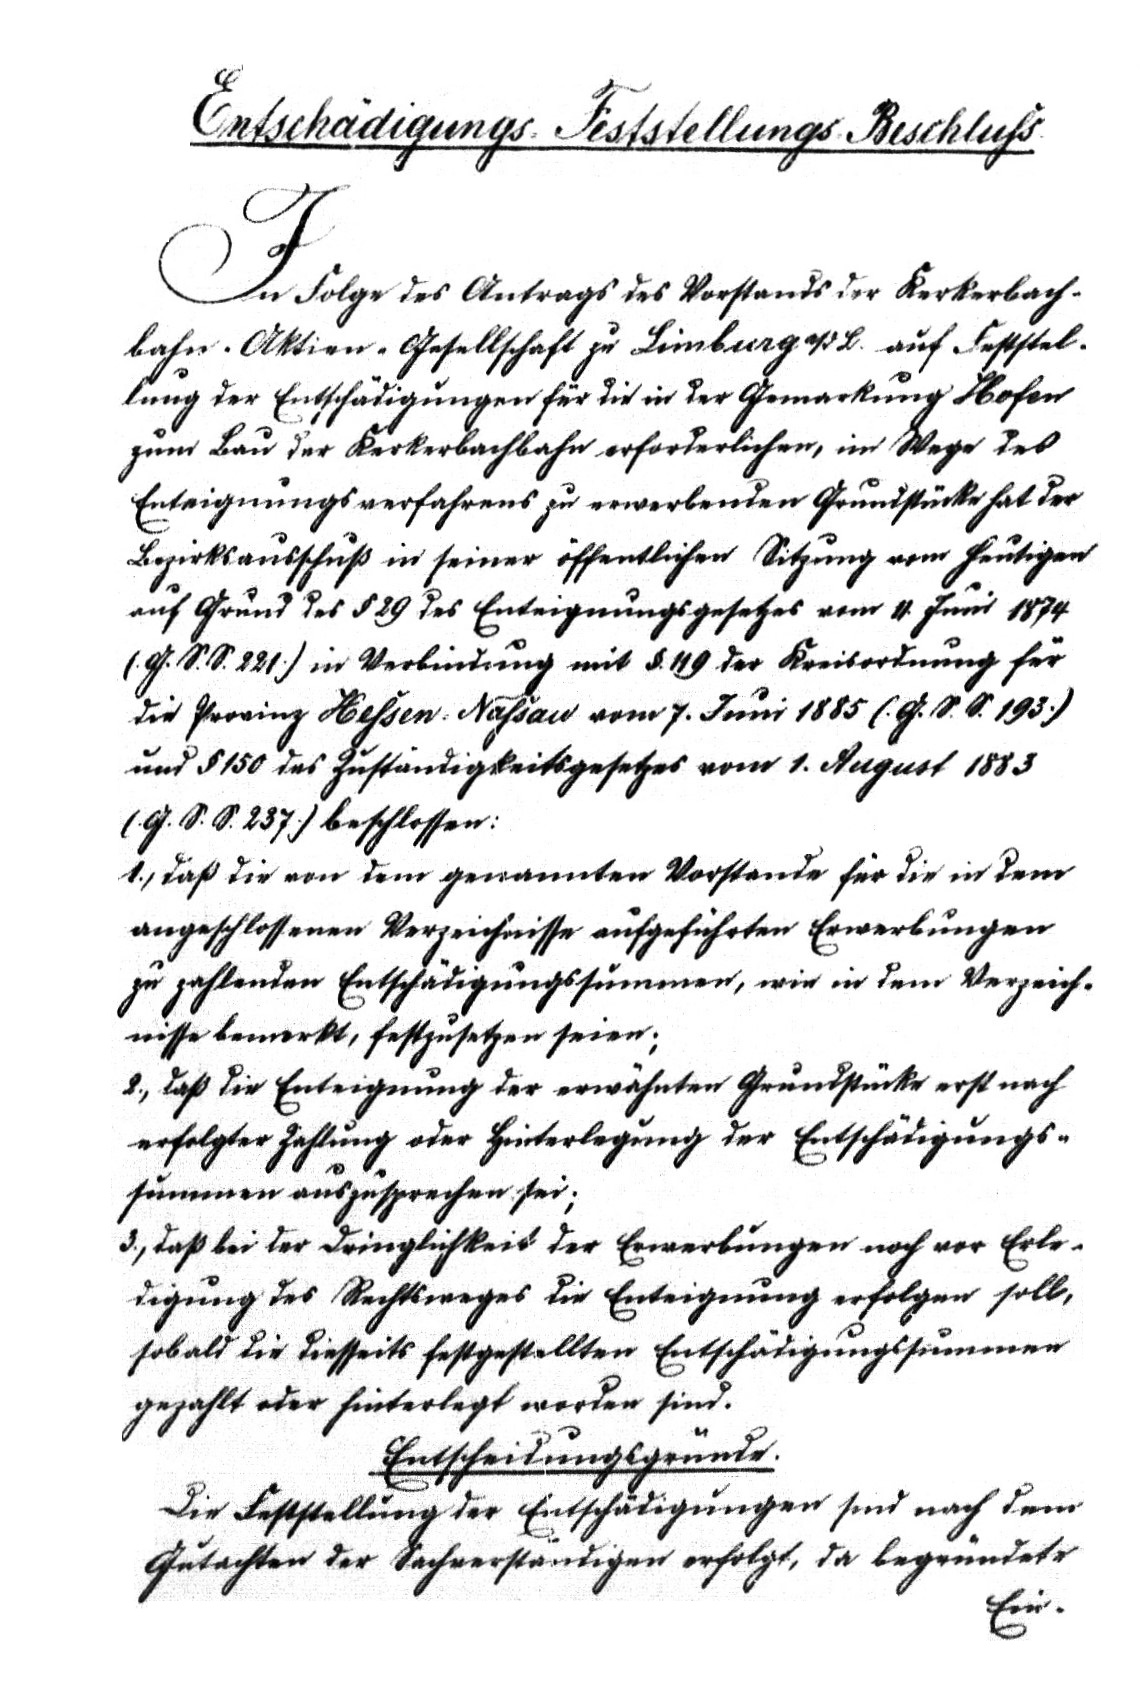 Entschädigungs-Feststellungs-Beschluss.
In Folge des Antrags des Vorstands der Kerkerbach-
bahn-Aktien-Gesellschaft zu Limburg a/d L. auf Feststel-
lung der Entschädigungen für die in der Gemarkung Hofen
zum Bau der Kerkerbachbahn erforderlichen, im Wege des
Enteignungsverfahrens zu erwerbenden Grundstücke hat der
Bezirksausschuß in seiner öffentlichen Sitzung vom heutigen
auf Grund des § 29 des Enteignungsgesetzes vom 11. Juni 1874
(. G. S. S. 221.) in Verbindung mit §. 119 der Kreisordnung für
die Provinz Hessen-Nassau vom 7. Juni 1885 (. G. S. S. 193.)
und § 150 des Zuständigkeitsgesetzes vom 1. August 1883
(. G. S. S. 237.) beschlossen:
1., daß die von dem genannten Vorstande für die in dem
angeschlossenen Verzeichnisse aufgeführten Erwerbungen
zu zahlenden Entschädigungssummen, wie in dem Verzeich-
nisse bemerkt, festzusetzen seien;
2., daß die Enteignung der erwähnten Grundstücke erst nach
erfolgter Zahlung oder Hinterlegung der Entschädigungs-
summen auszusprechen sei;
3., daß bei der Dringlichkeit der Erwerbungen noch vor Erle-
digung des Rechtsweges die Enteignung erfolgen soll,
sobald die diesseits festgestellten Entschädigungssummen
gezahlt oder hinterlegt worden sind.
Entscheidungsgründe.
Die Feststellung der Entschädigungen sind nach dem
Gutachten der Sachverständigen erfolgt, da begründete
Ein-